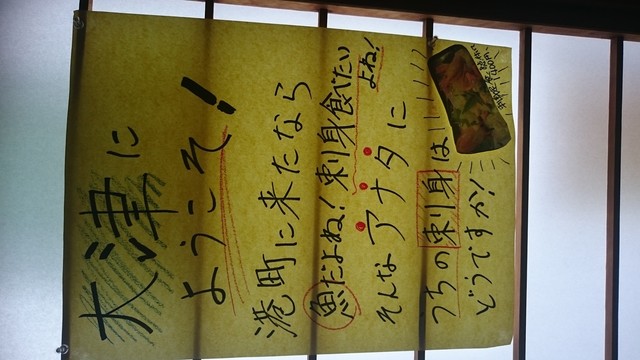 大津に
ようこそ!
港町に来たなら
魚だよね!刺身食べたい
よね!
そんなアナタに
うちの刺身は
どうですか!